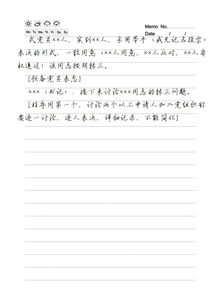 Memo No.
Mo Tu We Th Fr Sa Su
Date / /
式党员××人，实到××人，采用举手（或无记名投票）
表决的形式，一致同意（××人同意，××人反对，××人弃
权通过）该同志按期转正。
[预备党员表态]
×××（书记）：接下来讨论×××同志的转正问题。
[程序同第一个，讨论两个以上申请人加入党组织的
要逐一讨论，逐人表决，详细记录，不能简化]